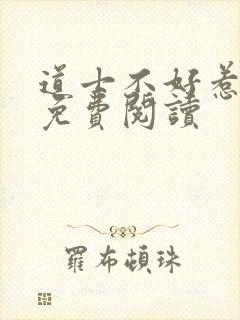 道士不好惹
免費閱讀
羅布頓珠